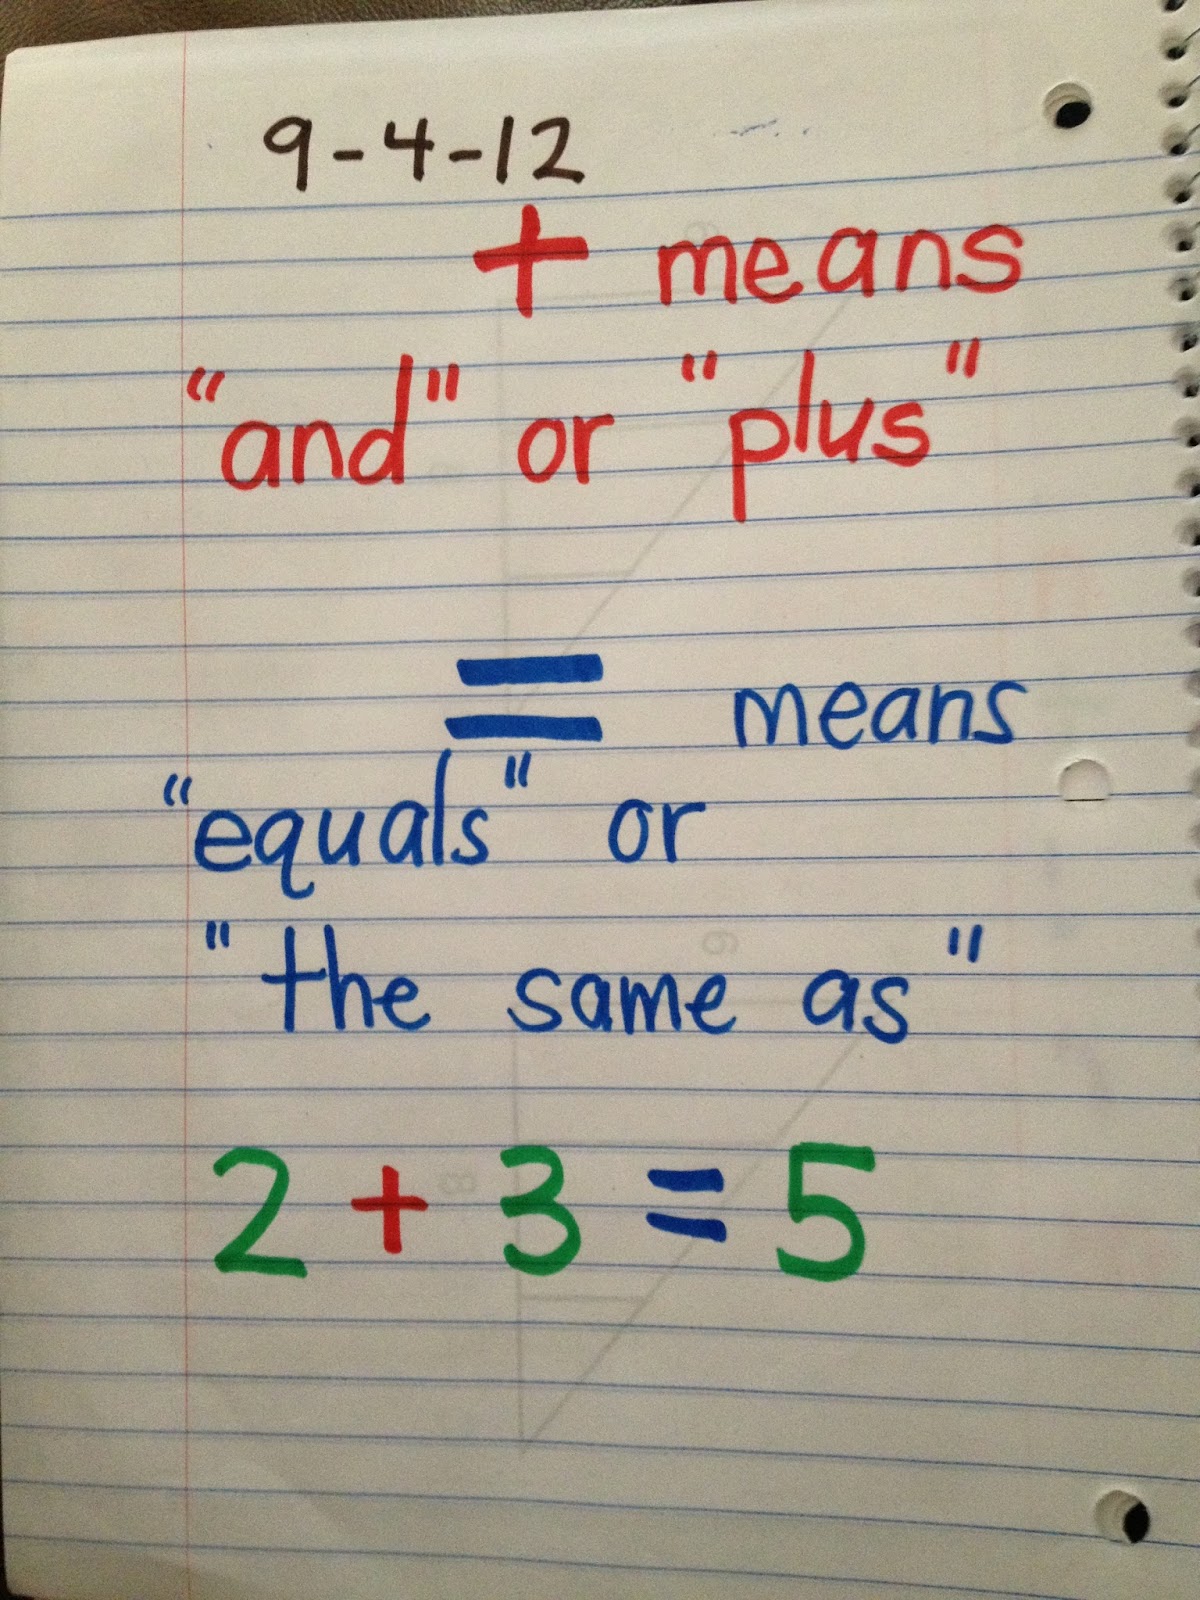 9-4-12
+ means
"and" or "plus"
= means
"equals" or
"the same as"
2 + 3 = 5